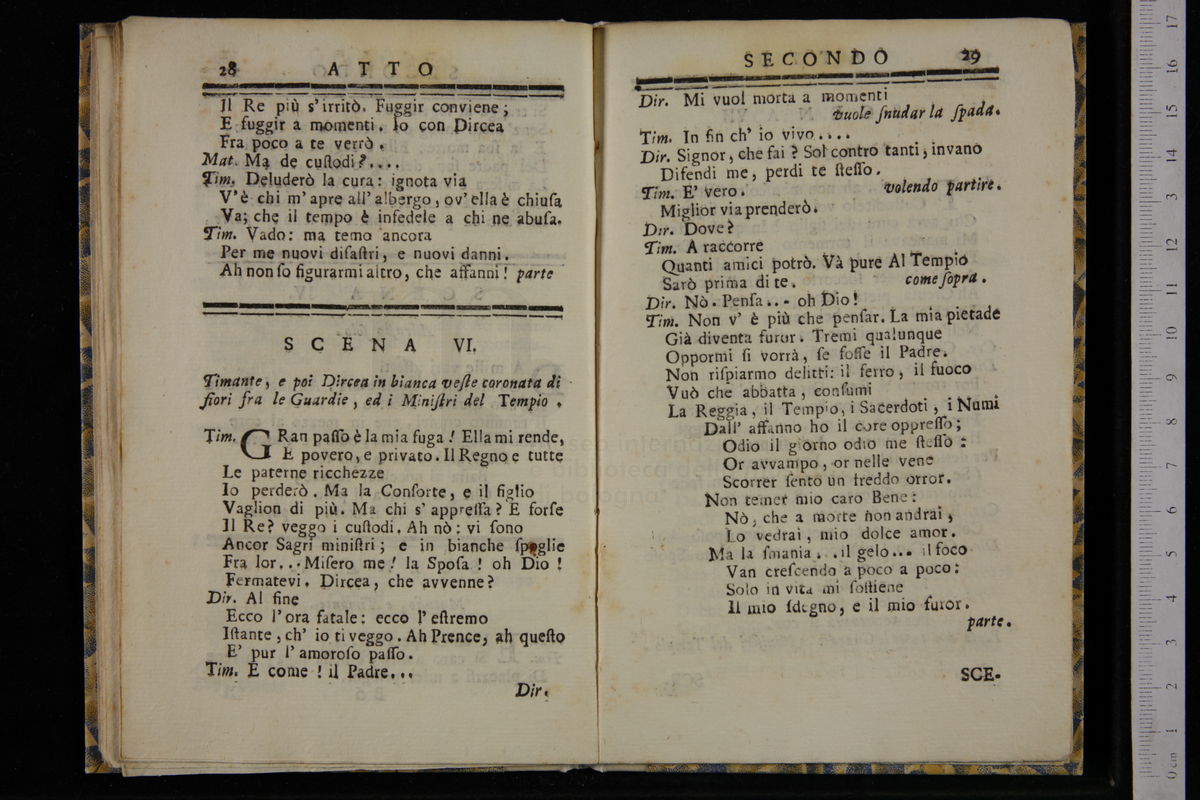 28 ATTO
Il Re più s'irritò. Fuggir conviene;
E fuggir a momenti. Io con Dircea
Fra poco a te verrò.
Mat. Ma de cuſtodi?....
Tim. Deluderò la cura: ignota via
V'è chi m'apre all'albergo, ov'ella è chiuſa
Va; che il tempo è infedele a chi ne abuſa.
Tim. Vado: ma temo ancora
Per me nuovi diſaſtri, e nuovi danni.
Ah non ſo figurarmi altro, che affanni! parte
SCENA VI.
Timante, e poi Dircea in bianca veſte coronata di
fiori fra le Guardie, ed i Miniſtri del Tempio.
Tim. GRan paſſo è la mia fuga! Ella mi rende,
E povero, e privato. Il Regno e tutte
Le paterne ricchezze
Io perderò. Ma la Conſorte, e il figlio
Vaglion di più. Ma chi s'appreſſa? E forſe
Il Re? veggo i cuſtodi. Ah nò: vi ſono
Ancor Sagri miniſtri; e in bianche ſpoglie
Fra lor... Miſero me! la Spoſa! oh Dio!
Fermatevi. Dircea, che avvenne?
Dir. Al fine
Ecco l'ora fatale: ecco l'eſtremo
Iſtante, ch'io ti veggo. Ah Prence, ah queſto
E' pur l'amoroſo paſſo.
Tim. E come! il Padre...
Dir.
SECONDO 29
Dir. Mi vuol morta a momenti
vuole ſnudar la ſpada.
Tim. In fin ch'io vivo....
Dir. Signor, che fai? Sol contro tanti, invano
Difendi me, perdi te ſteſſo.
Tim. E' vero. volendo partire.
Miglior via prenderò.
Dir. Dove?
Tim. A raccorre
Quanti amici potrò. Và pure Al Tempio
Sarò prima di te. come ſopra.
Dir. Nò. Penſa... oh Dio!
Tim. Non v'è più che penſar. La mia pietade
Già diventa furor. Tremi qualunque
Oppormi ſi vorrà, ſe foſſe il Padre.
Non riſpiarmo delitti: il ferro, il fuoco
Vuò che abbatta, conſumi
La Reggia, il Tempio, i Sacerdoti, i Numi
Dall' affanno ho il core oppreſſo;
Odio il giorno odio me ſteſſo:
Or avvampo, or nelle vene
Scorrer ſento un freddo orror.
Non temer mio caro Bene:
Nò, che a morte non andrai,
Lo vedrai, mio dolce amor.
Ma la ſmania... il gelo... il foco
Van creſcendo a poco a poco:
Solo in vita mi ſoſtiene
Il mio ſdegno, e il mio furor.
parte.
SCE-